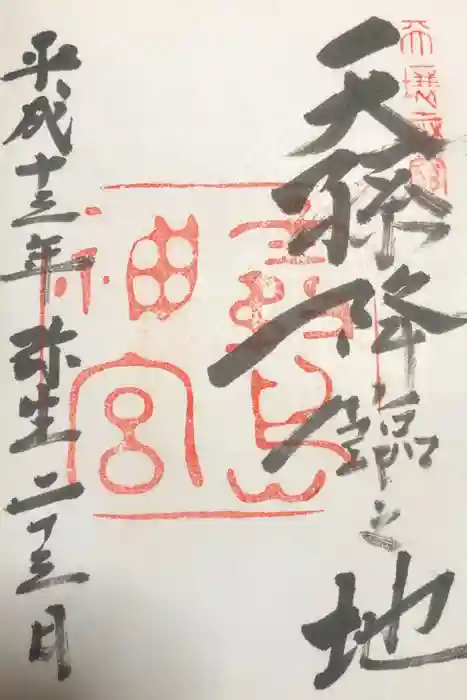 天孫降臨之地
霧島
神宮
平成十三年弥生二十三日